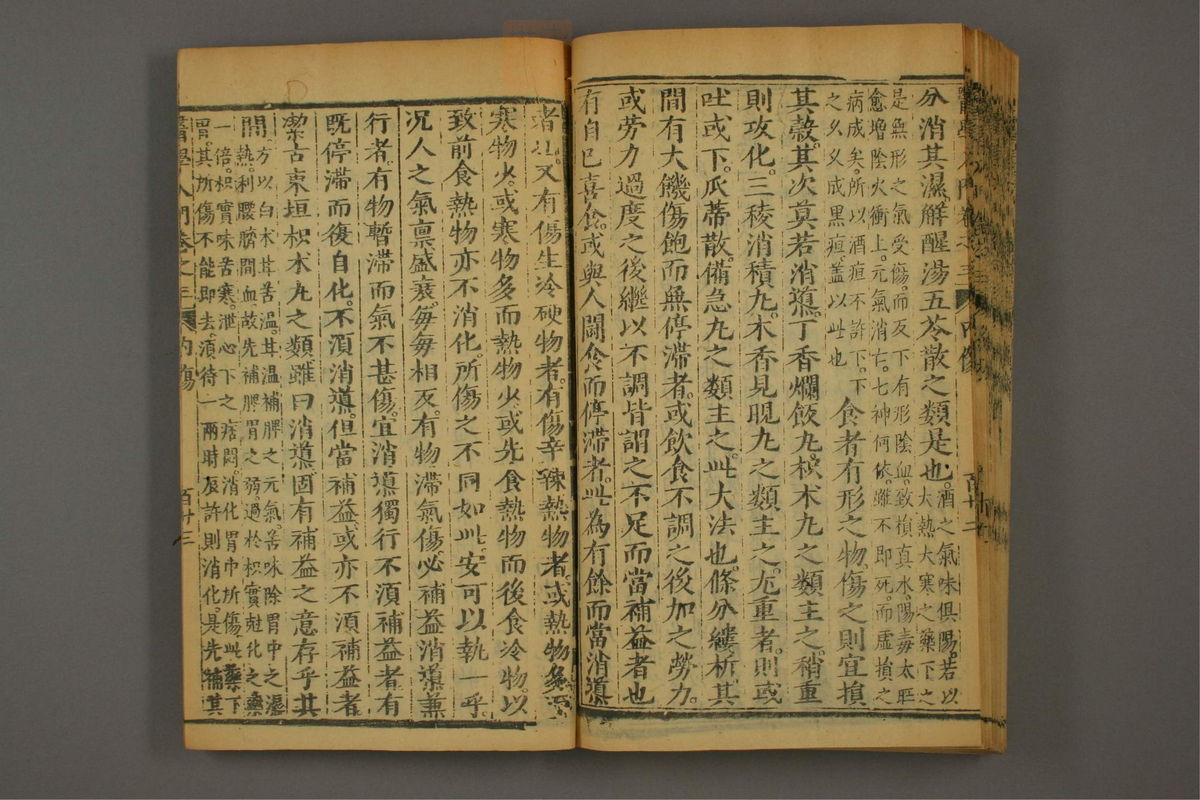 分消其濕解醒湯五苓散之類是也酒之氣味俱陽若以
大熱大寒之藥下之
是無形之氣受傷而反下有形陰血致損真水陽毒太旺
愈增陰火衝上元氣消亡七神何依雖不即死而虛損之
病成矣所以酒疸不許下下
之久久成黑疸蓋以此也
食者有形之物傷之則宜損
其穀其次莫若消導丁香爛飯丸枳朮丸之類主之稍重
則攻化三稜消積丸木香見晛丸之類主之尤重者則或
吐或下瓜蒂散備急丸之類主之此大法也條分縷析其
間有大饑傷飽而無停滯者或飲食不調之後加之勞力
或勞力過度之後繼以不調皆謂之不足而當補益者也
有自己喜食或與人鬪食而停滯者此為有餘而當消導
者也又有傷生冷硬物者有傷辛辣熱物者或熱物多
寒物少或寒物多而熱物少或先食熱物而後食冷物以
致前食熱物亦不消化所傷之不同如此安可以執一乎
况人之氣禀盛衰每每相反有物滯氣傷必補益消導兼
行者有物暫滯而氣不甚傷宜消導獨行不須補益者有
既停滯而復自化不須消導但當補益或亦不須補益者
潔古東垣枳朮丸之類雖曰消導固有補益之意存乎其
間方以白朮苷苦溫苷溫補脾之元氣苦味除胃中之濕
熱利腰臍間血故先補脾胃之弱過於枳實尅化之藥
一倍枳實味苦寒泄心下之痞悶消化胃中所傷此藥下
胃其所傷不能即去須待一兩時辰許則消化是先補其
醫學入門卷之三 內傷 百廿三